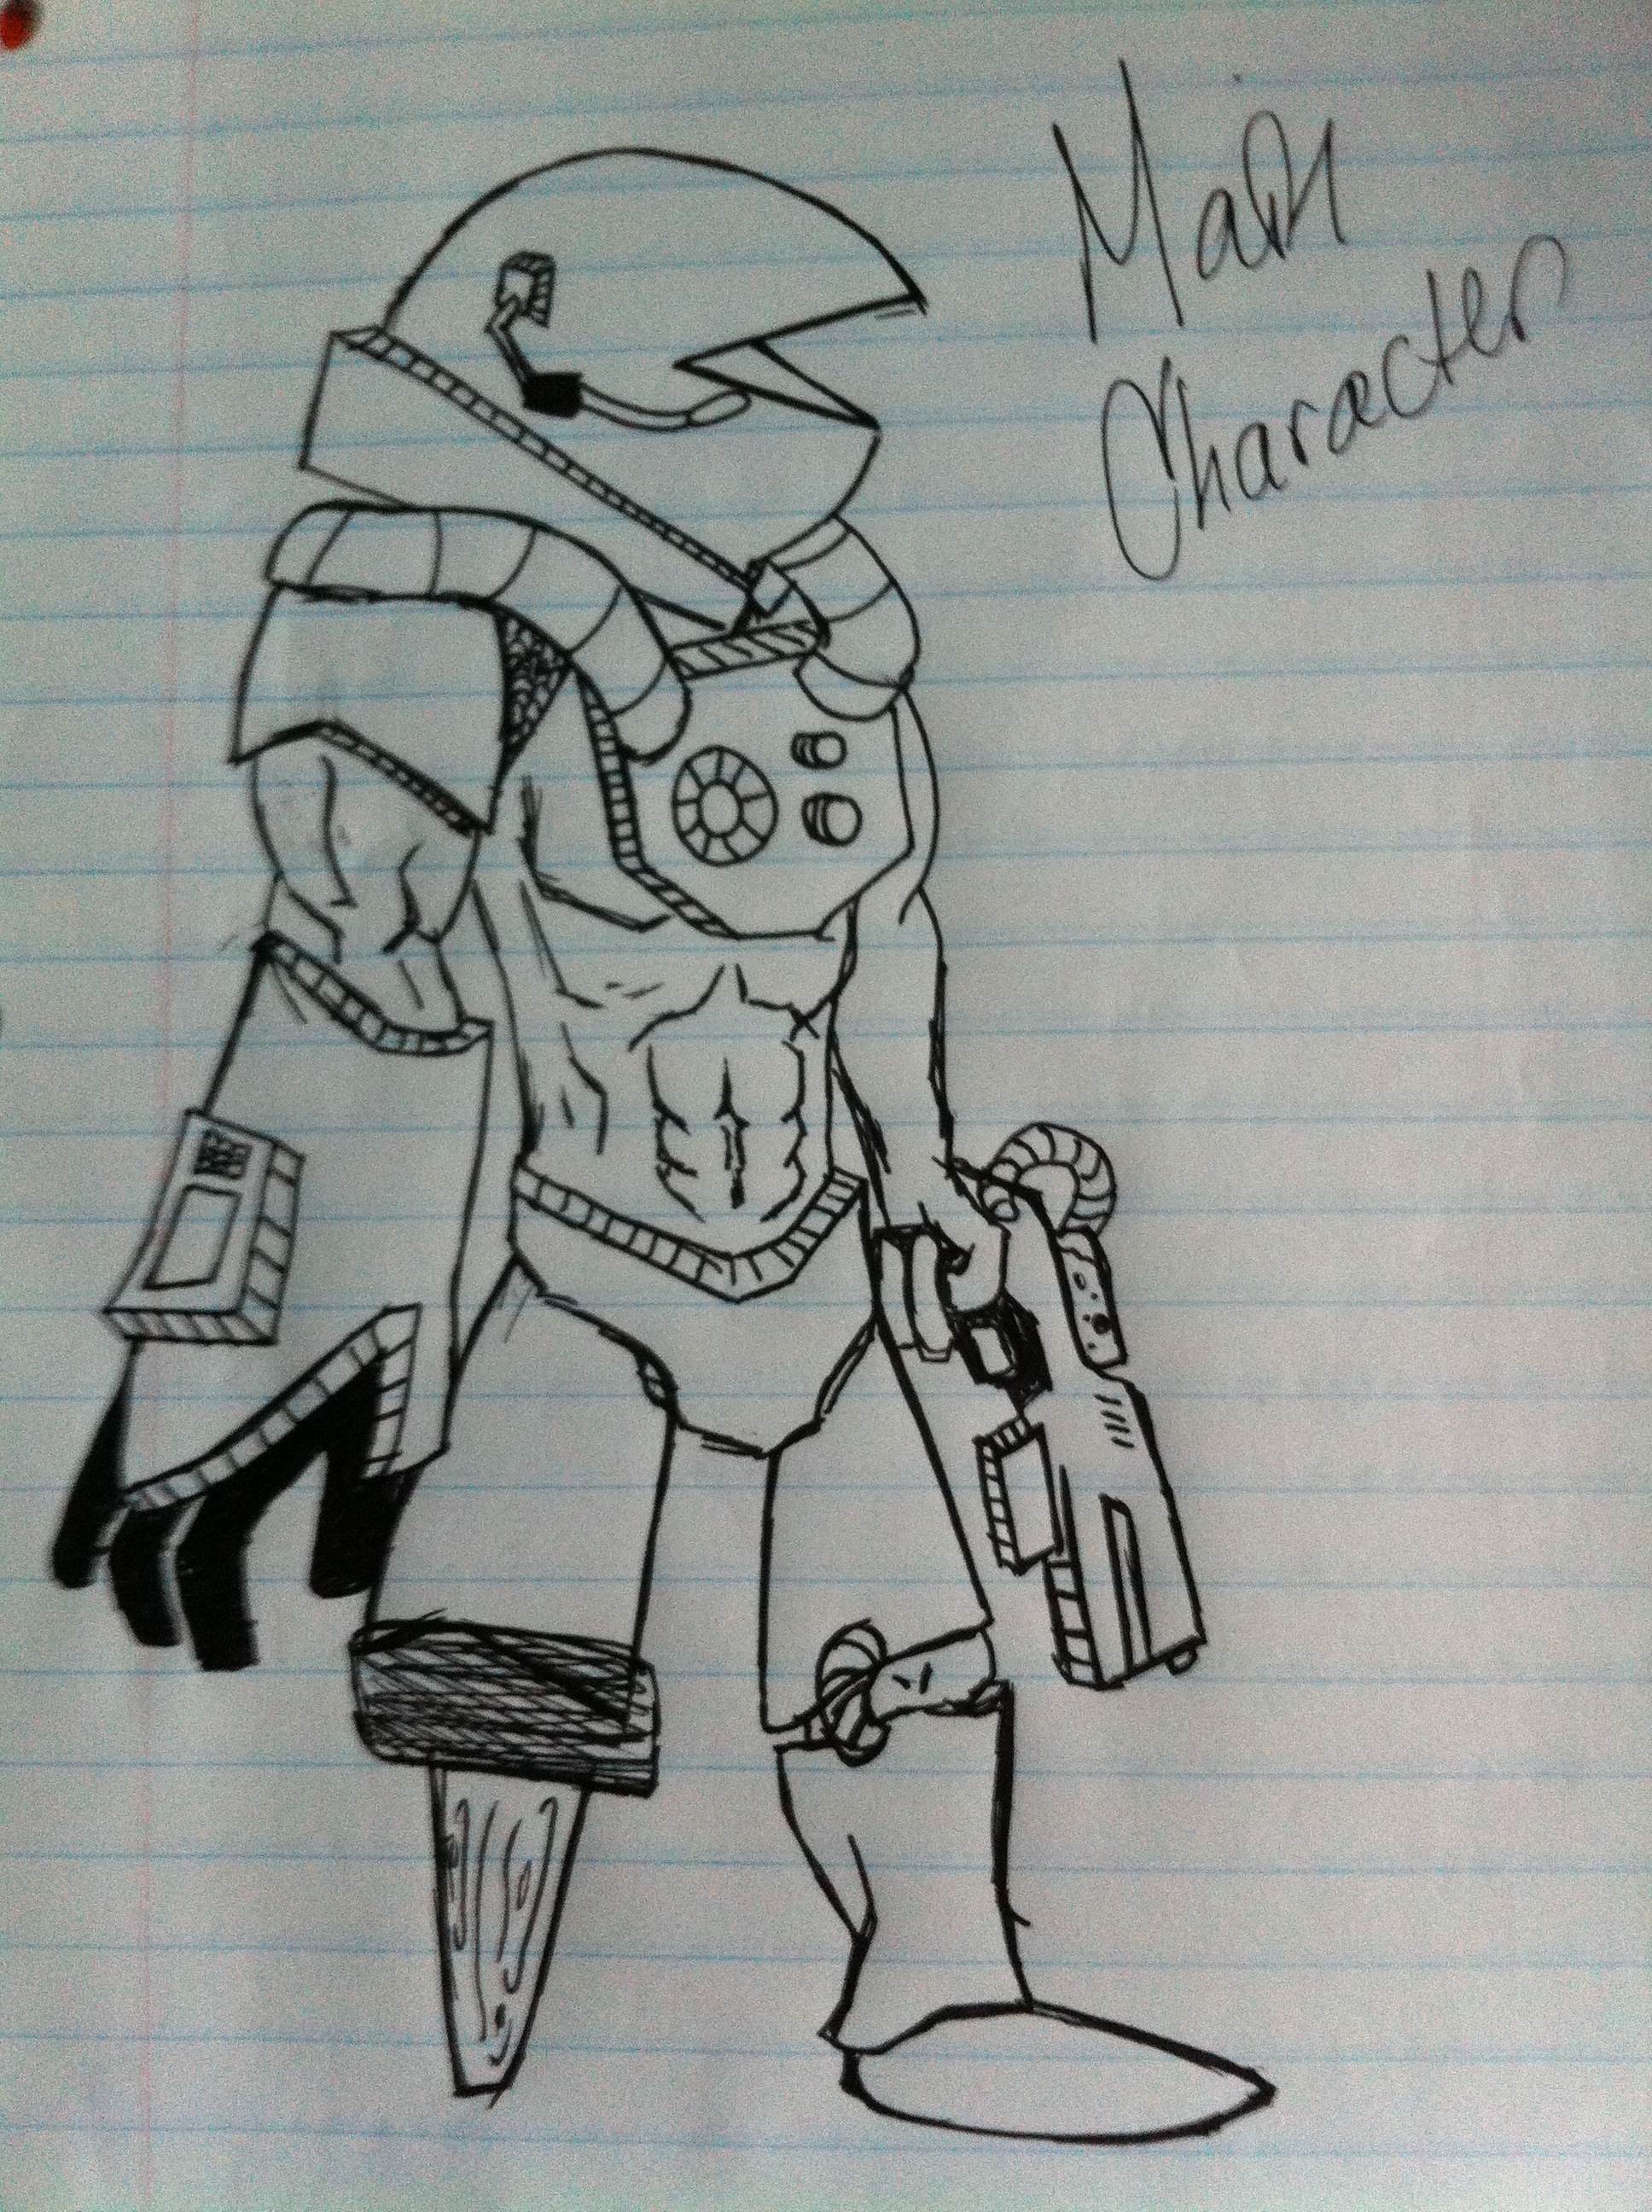 Main
Character